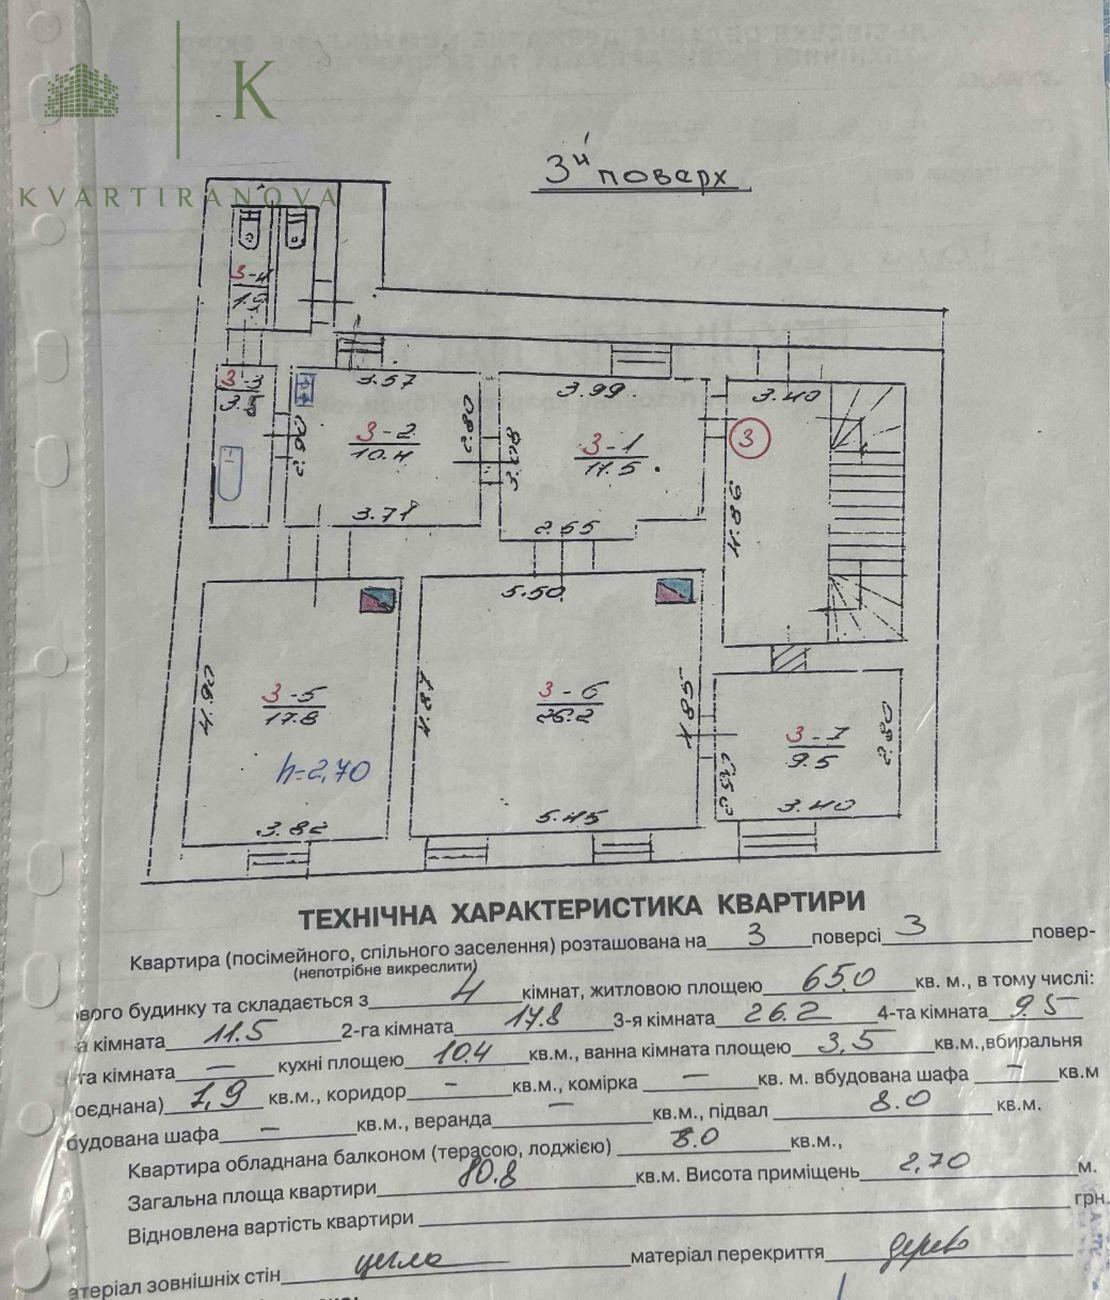 K
KVARTIRANOVA
3й поверх
3-4
1.9
3-3
3.5
3.57
3.99
3.40
3-2
10.4
2.90
2.80
3.08
3-1
11.5
3
3.71
2.55
4.89
5.50
4.90
3-5
17.8
h=2,70
4.87
3-6
26.2
4.85
3-7
9.5
2.80
3.82
5.45
3.40
ТЕХНІЧНА ХАРАКТЕРИСТИКА КВАРТИРИ
Квартира (посімейного, спільного заселення) розташована на 3 поверсі 3 повер-
(непотрібне викреслити)
вого будинку та складається з 4 кімнат, житловою площею 65,0 кв. м., в тому числі:
а кімната 11.5 2-га кімната 17.8 3-я кімната 26.2 4-та кімната 9.5
та кімната — кухні площею 10.4 кв.м., ванна кімната площею 3,5 кв.м.,вбиральня
оєднана) 1,9 кв.м., коридор - кв.м., комірка — кв. м. вбудована шафа - кв.м
будована шафа — кв.м., веранда — кв.м., підвал 8.0 кв.м.
Квартира обладнана балконом (терасою, лоджією) 8.0 кв.м.,
Загальна площа квартири 80.8 кв.м. Висота приміщень 2,70 м.
Відновлена вартість квартири грн.
атеріал зовнішніх стін цегла матеріал перекриття дерев